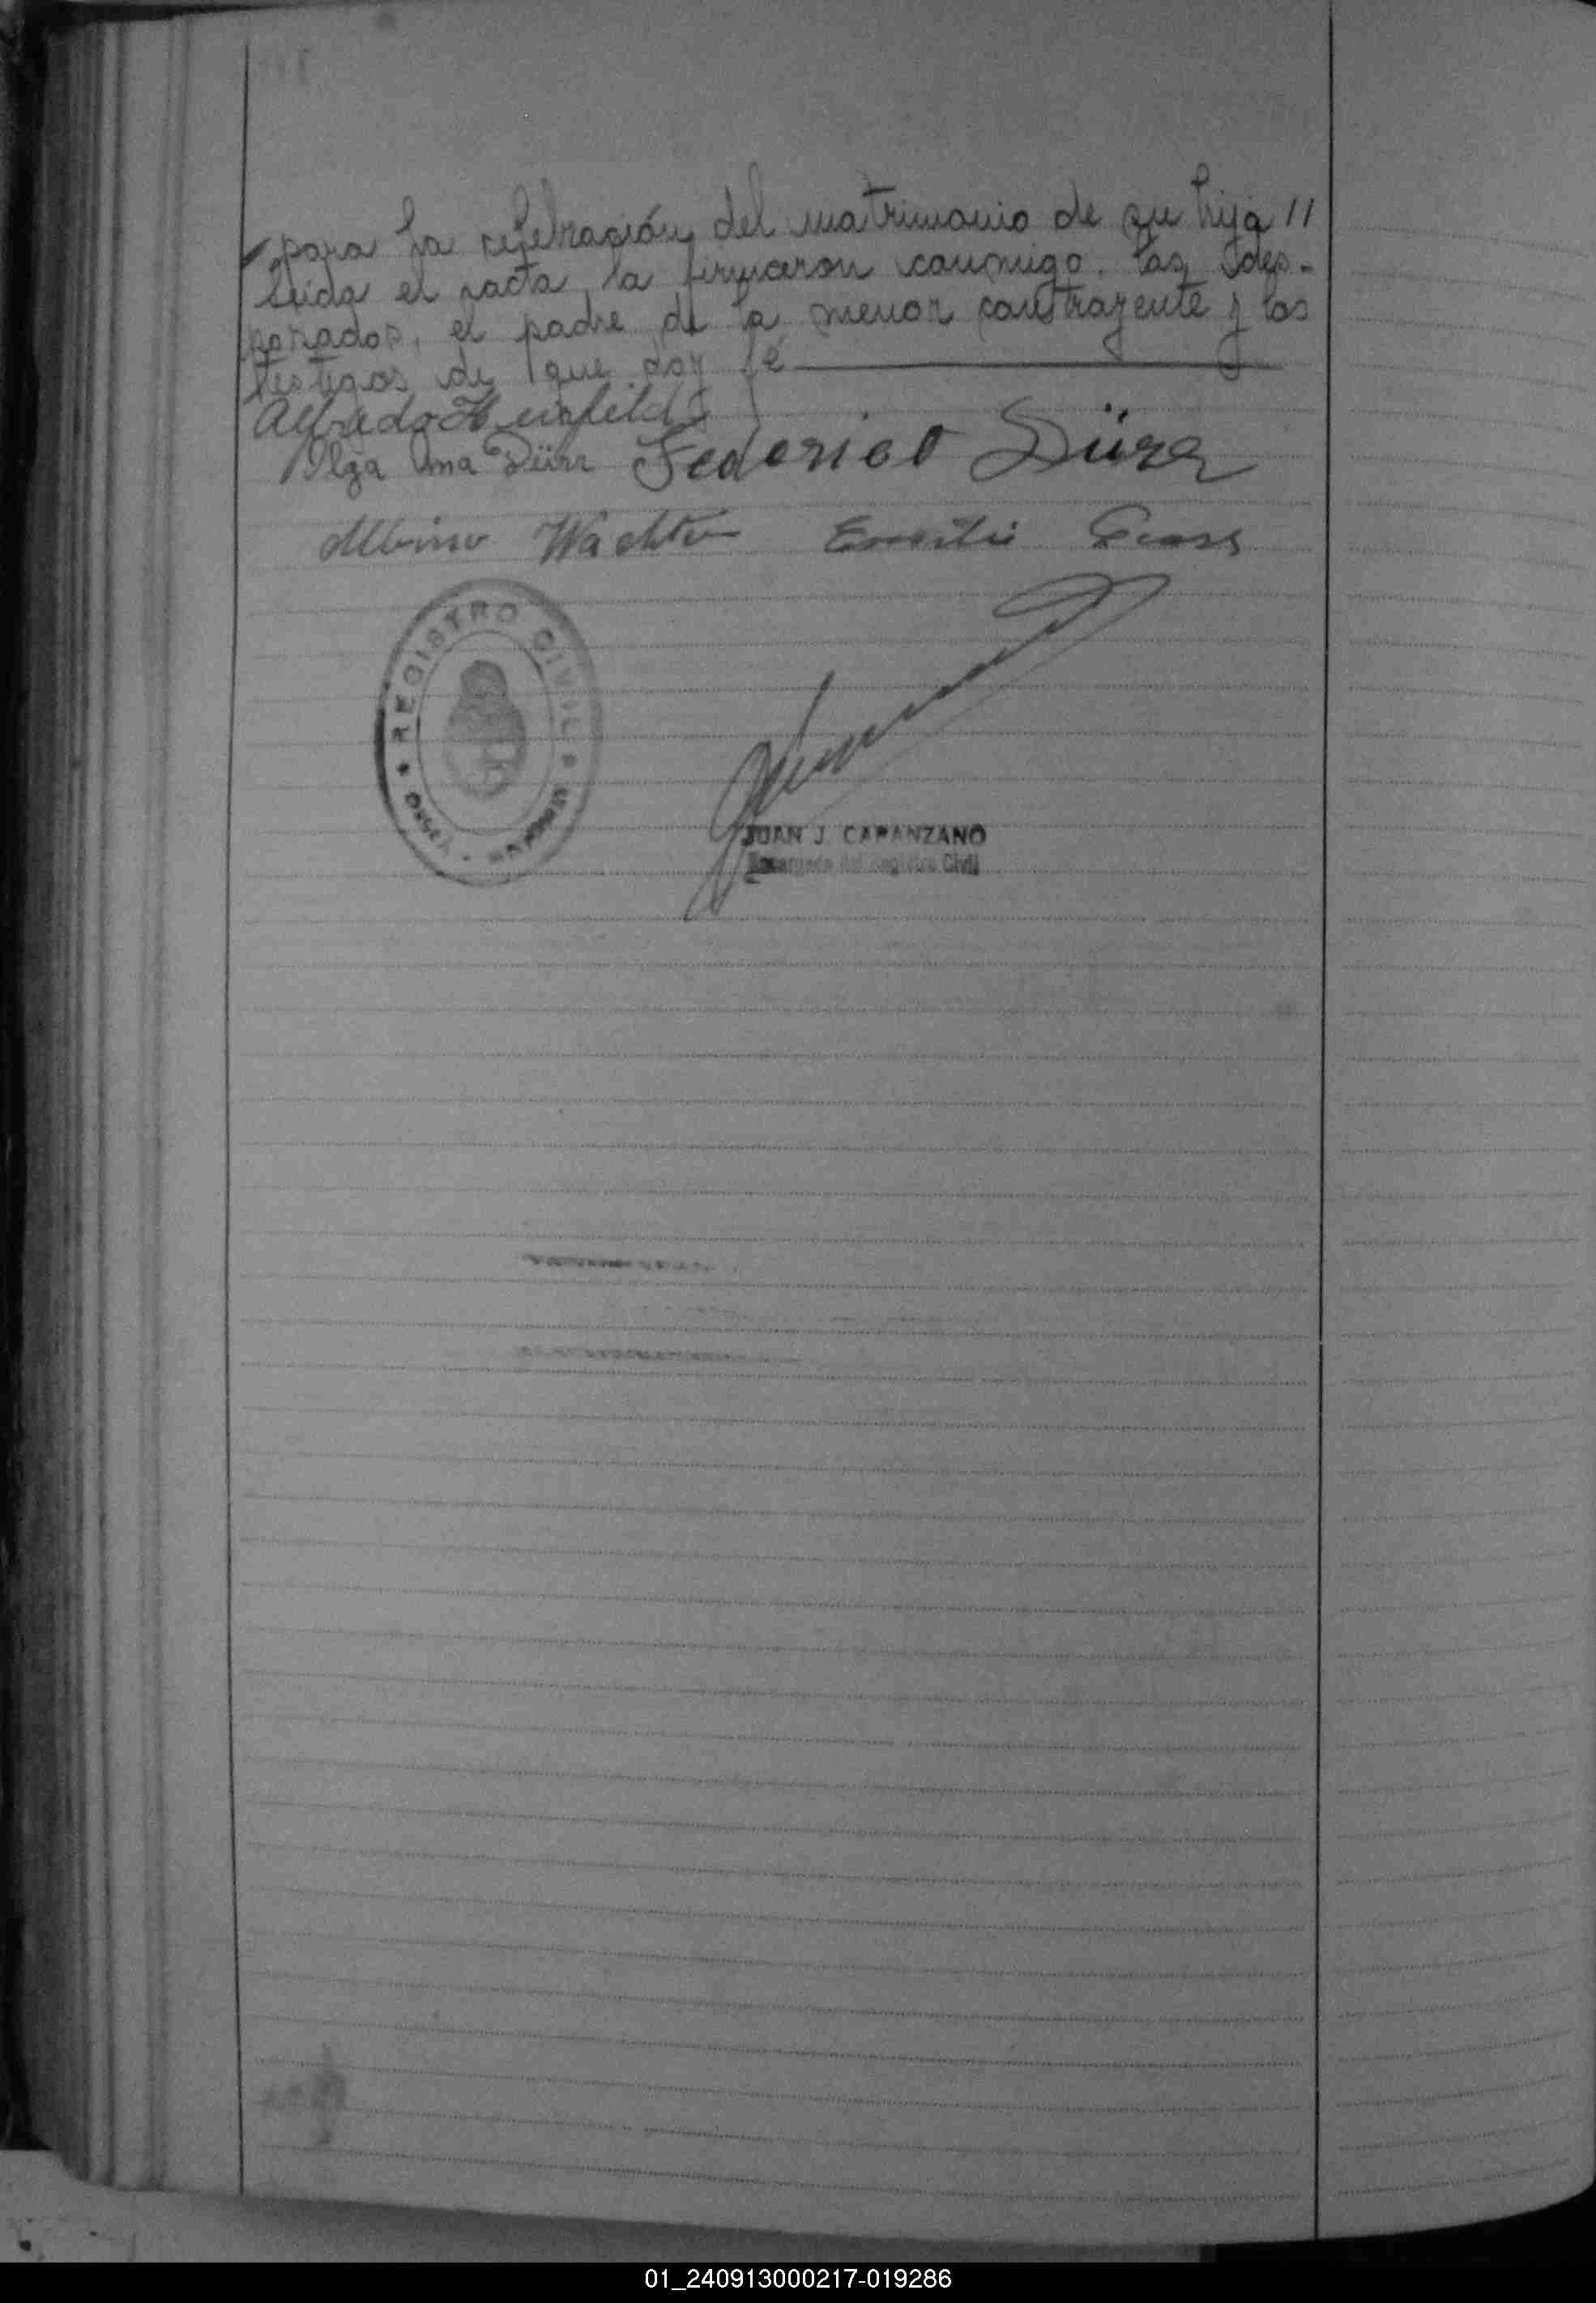 para la celebración del matrimonio de su hija //
Leida el acta, la firmaron conmigo, los, des-
posados, el padre de la menor contrayente y los
testigos de que doy fé
Alfredo
Olga Dürr Federico Dürr
Albino Wachter
REGISTRO CIVIL
MISIONES
JUAN J. CAPANZANO
Encargado del Registro Civil
01_240913000217-019286